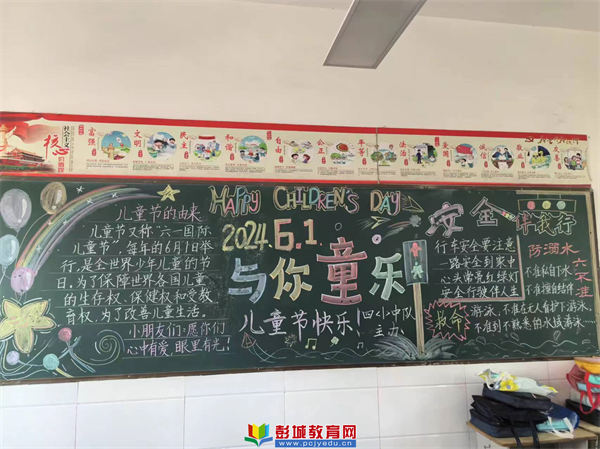 社会主义
核心
价值观
富强
文明
民主
和谐
自由
公正
平等
法治
爱国
诚信
HAPPY CHILDREN'S DAY
2024.6.1
与你童乐
儿童节快乐!
四小中队
主力
儿童节的由来
儿童节又称“六一国际
儿童节”,每年的6月1日举
行,是全世界少年儿童的节
日,为了保障世界各国儿童
的生存权、保健权和受教
育权,为了改善儿童生活。
小朋友们:愿你们
心中有爱,眼里有光!
安全伴我行
行车安全要注意
一路安全到家中
心头常亮红绿灯
安全行驶伴人生
防溺水
六不准
不准私自下水
救命
游泳,不准在无人看护下游泳,
不准到不熟悉的水域游泳……
彭城教育网
www.pcjyedu.cn